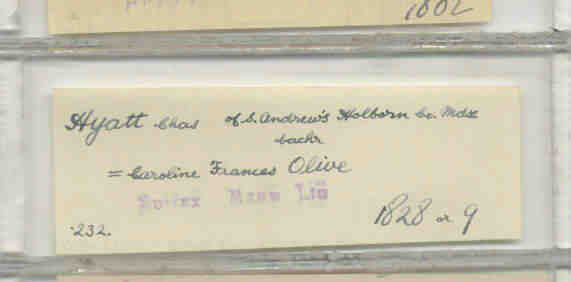 1802
Hyatt Chas of S. Andrew's Holborn co. Mdsx
bachr
= Caroline Frances Olive
Marr Lic
1828 or 9
232.